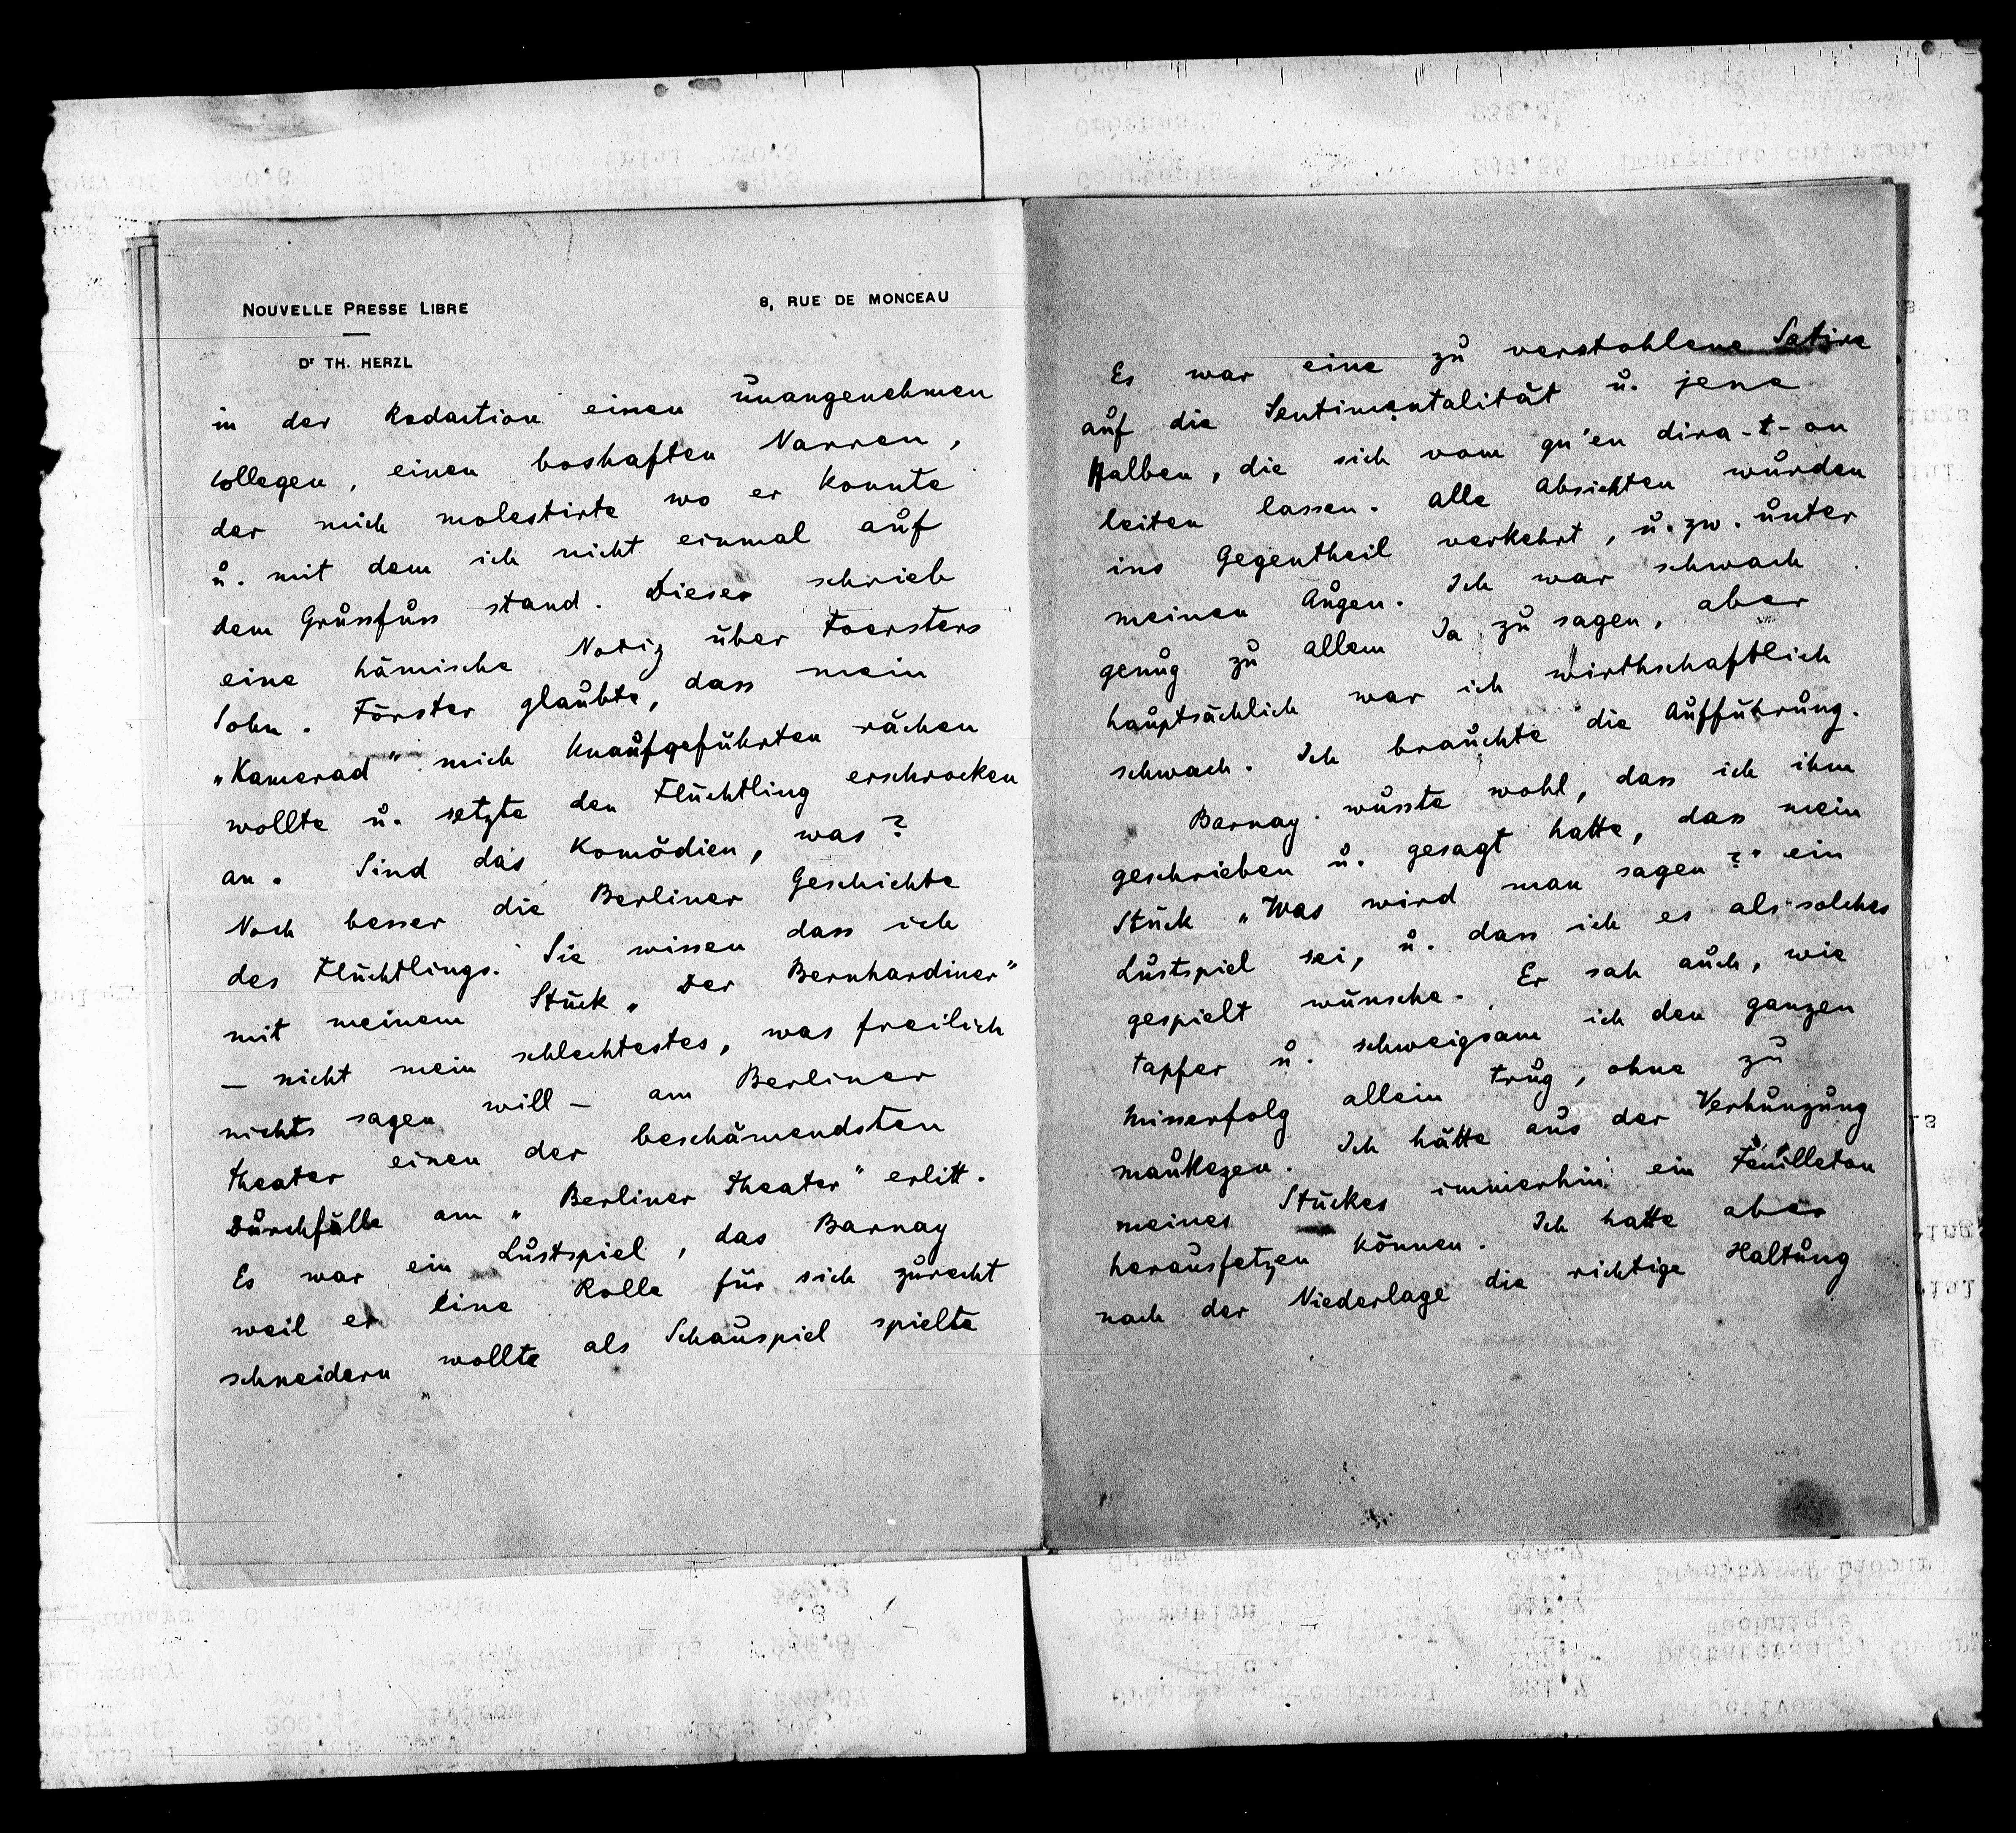 NOUVELLE PRESSE LIBRE
8, RUE DE MONCEAU
Dr TH. HERZL
in der Redaction einen unangenehmen
Collegen, einen boshaften Narren,
der mich molestirte wo er konnte
u. mit dem ich nicht einmal auf
dem Grussfuss stand. Dieser schrieb
eine hämische Notiz über Foersters
Sohn. Förster glaubte, dass mein
„Kamerad" mich Unaufgeführten rächen
wollte u. setzte den Flüchtling erschrocken
an. Sind das Komödien, was?
Noch besser die Berliner Geschichte
des Flüchtlings. Sie wissen dass ich
mit meinem Stück „Der Bernhardiner"
– nicht mein schlechtestes, was freilich
nichts sagen will – am Berliner
Theater einen der beschämendsten
Durchfälle am „Berliner Theater" erlitt.
Es war ein Lustspiel, das Barnay
weil er eine Rolle für sich zurecht
schneidern wollte als Schauspiel spielte
Es war eine zu verstohlene Satire
auf die Sentimentalität u. jene
Halben, die sich vom qu'en dira-t-on
leiten lassen. Alle Absichten wurden
ins Gegentheil verkehrt, u. zw. unter
meinen Augen. Ich war schwach
genug zu allem Ja zu sagen, aber
hauptsächlich war ich wirthschaftlich
schwach. Ich brauchte die Aufführung.
Barnay wusste wohl, dass ich ihm
geschrieben u. gesagt hatte, dass mein
Stück „Was wird man sagen?" ein
Lustspiel sei, u. dass ich es als solches
gespielt wünsche. Er sah auch, wie
tapfer u. schweigsam ich den ganzen
Misserfolg allein trug, ohne zu
mauksen. Ich hätte aus der Verhunzung
meines Stückes immerhin ein Feuilleton
herausfetzen können. Ich hatte aber
nach der Niederlage die richtige Haltung